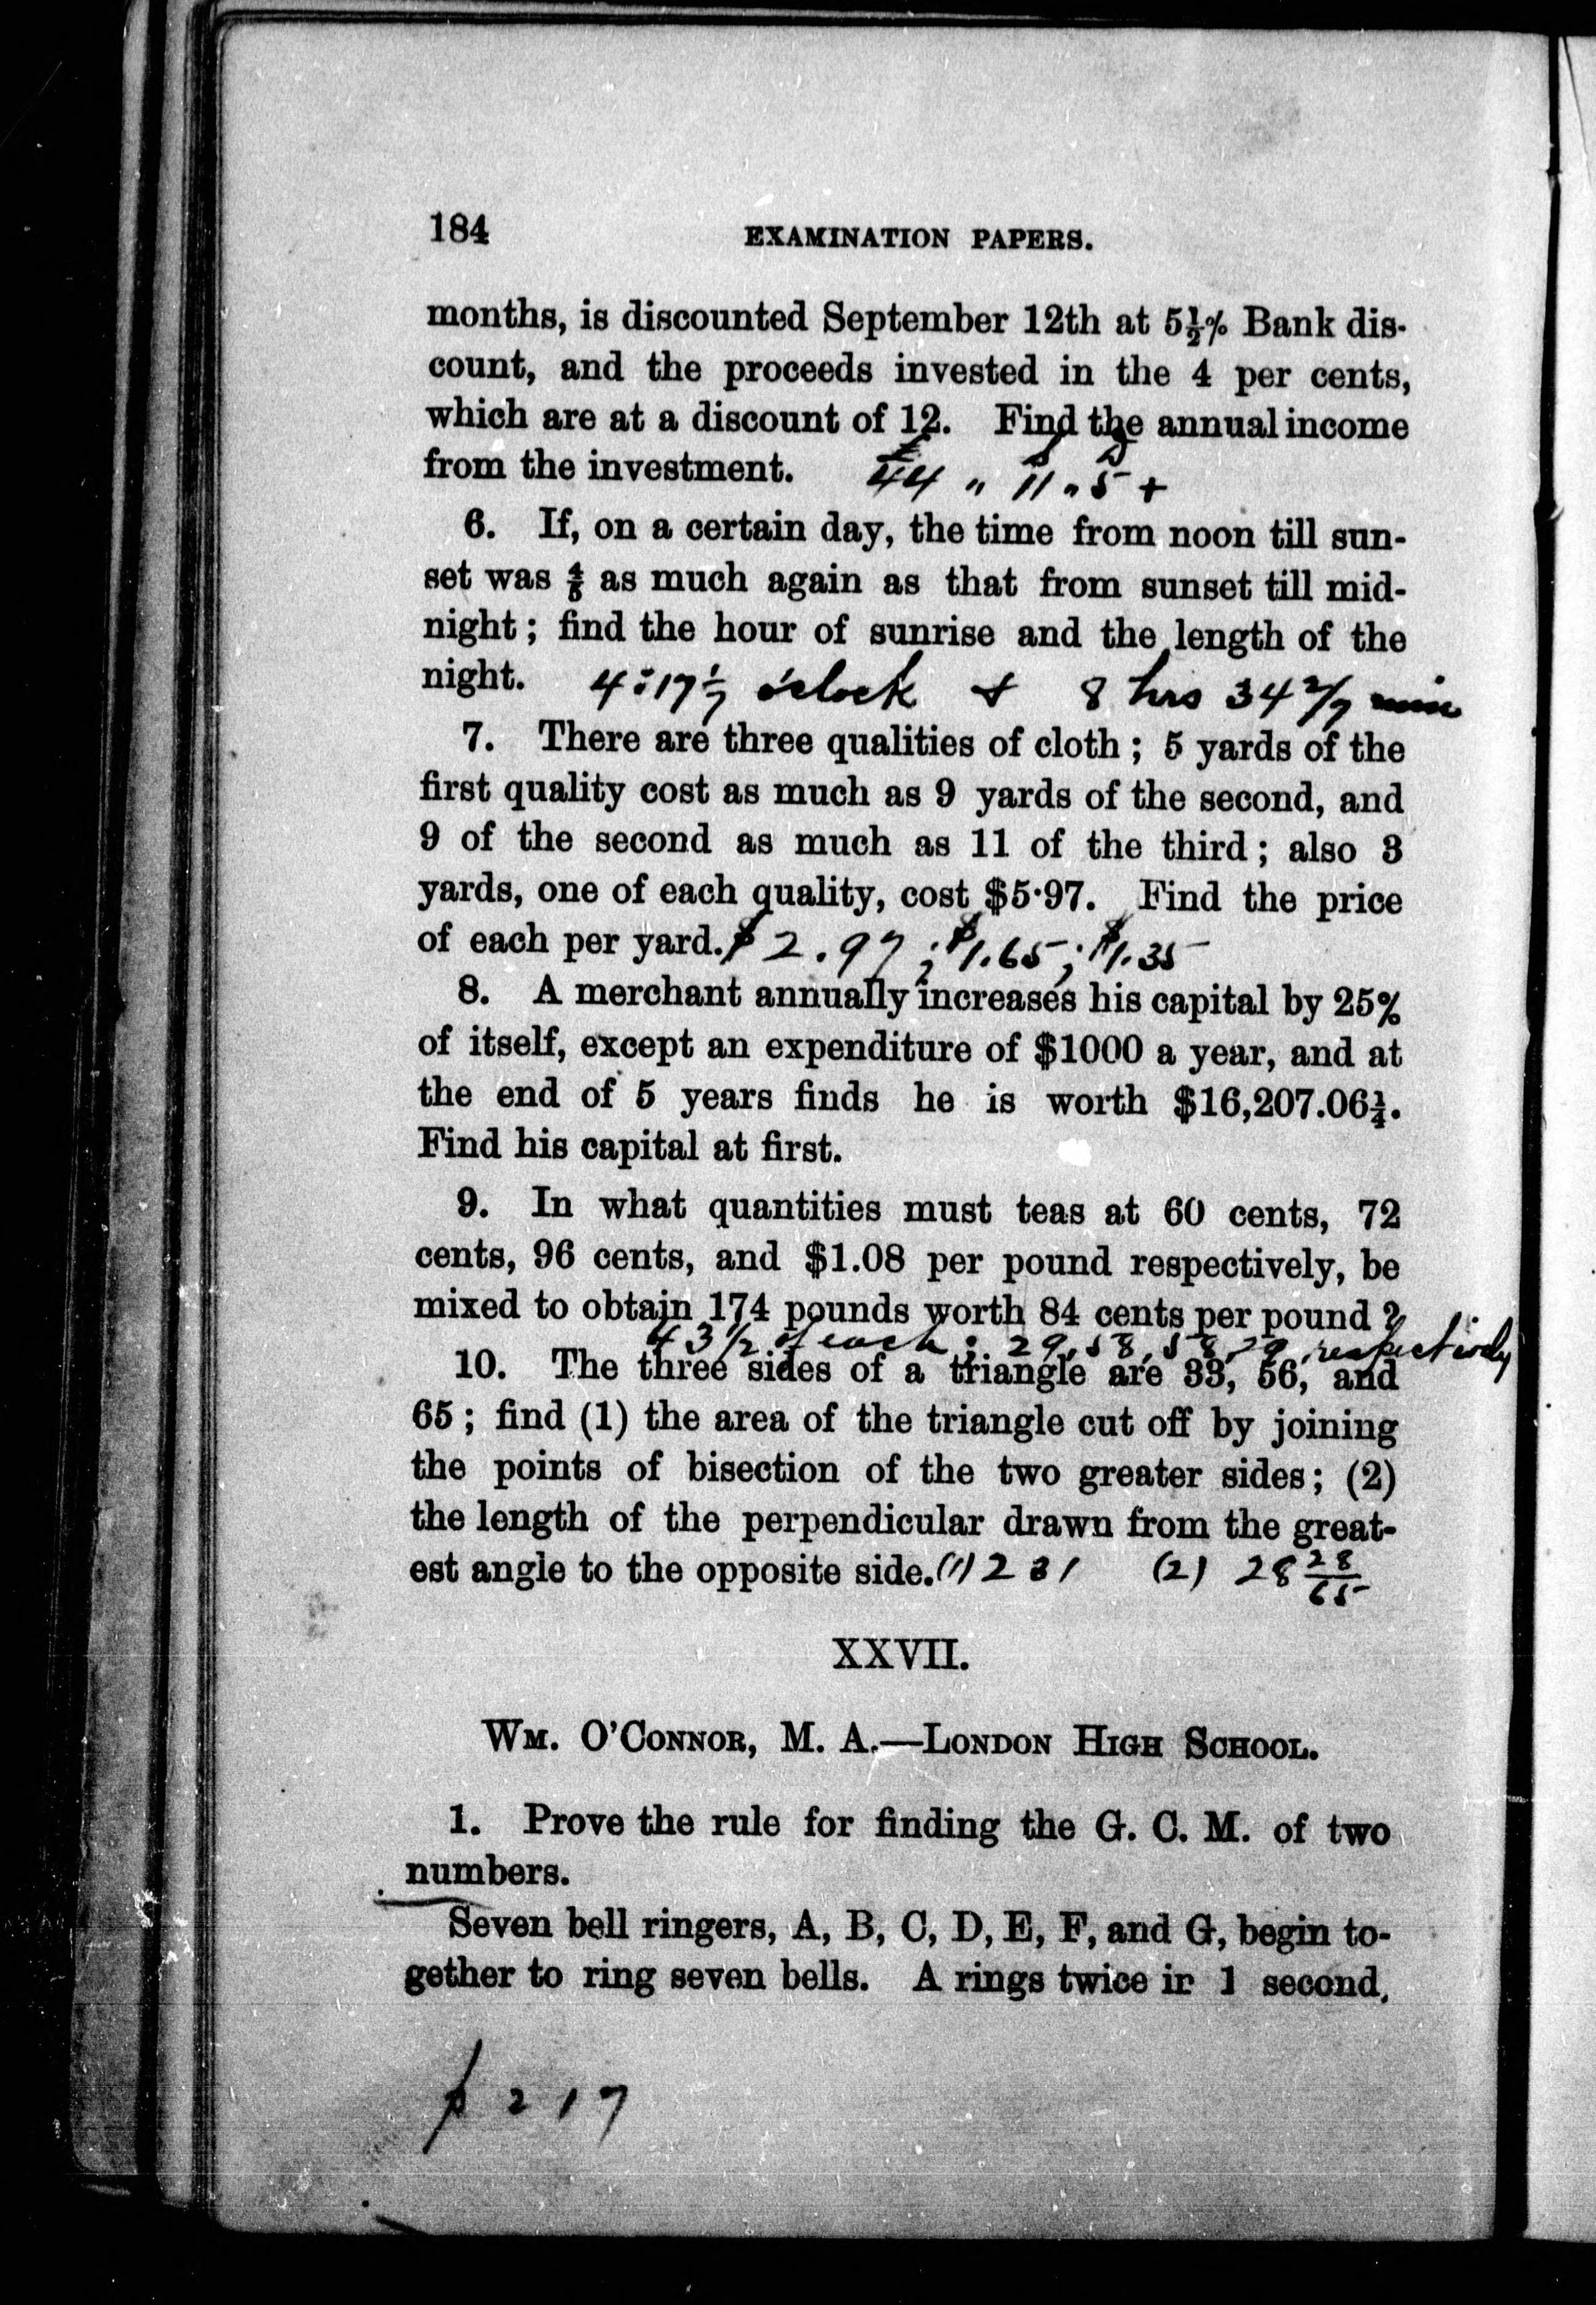 184
EXAMINATION PAPERS.
months, is discounted September 12th at 5½% Bank dis-
count, and the proceeds invested in the 4 per cents,
which are at a discount of 12. Find the annual income
from the investment. £44 „ 11s „ 5d +
6. If, on a certain day, the time from noon till sun-
set was ⅘ as much again as that from sunset till mid-
night; find the hour of sunrise and the length of the
night. 4:17 1/7 o'clock & 8 hrs 34 2/7 min
7. There are three qualities of cloth; 5 yards of the
first quality cost as much as 9 yards of the second, and
9 of the second as much as 11 of the third; also 3
yards, one of each quality, cost $5·97. Find the price
of each per yard. $2.97; $1.65; $1.35
8. A merchant annually increases his capital by 25%
of itself, except an expenditure of $1000 a year, and at
the end of 5 years finds he is worth $16,207.06¼.
Find his capital at first.
9. In what quantities must teas at 60 cents, 72
cents, 96 cents, and $1.08 per pound respectively, be
mixed to obtain 174 pounds worth 84 cents per pound?
43½ of each; 29, 58, 58, 29, respectively
10. The three sides of a triangle are 33, 56, and
65; find (1) the area of the triangle cut off by joining
the points of bisection of the two greater sides; (2)
the length of the perpendicular drawn from the great-
est angle to the opposite side. (1) 231 (2) 28 28/65
XXVII.
WM. O'CONNOR, M. A.—LONDON HIGH SCHOOL.
1. Prove the rule for finding the G. C. M. of two
numbers.
Seven bell ringers, A, B, C, D, E, F, and G, begin to-
gether to ring seven bells. A rings twice in 1 second,
p 217